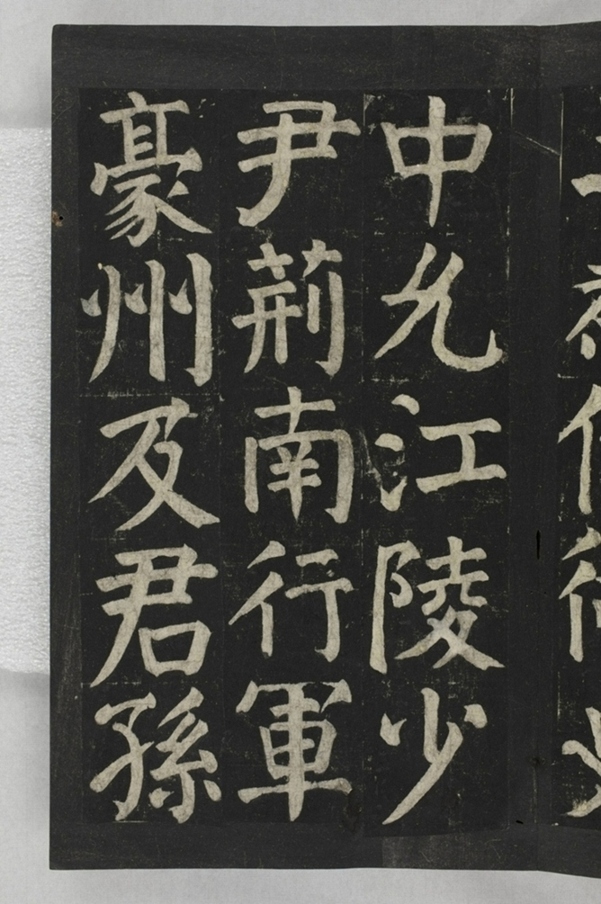 中允江陵少
尹荊南行軍
豪州及君孫